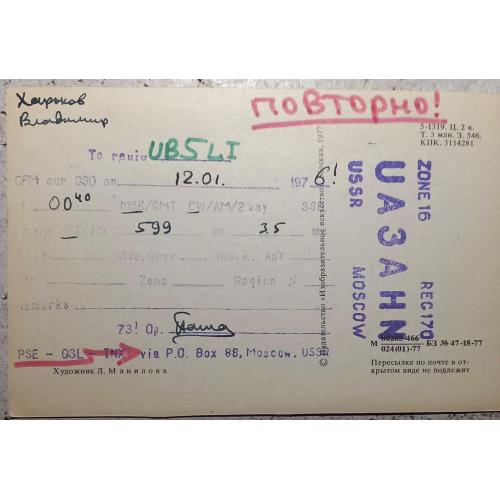 Харьков
Владимир
ПОВТОРНО!
5-1319. Ц. 2 к.
Т. 3 млн. З. 546.
КПК. 3114281
To radio UB5LI
CFM our QSO on 12.01. 1978!
00 40 MSK/GMT CW/AM/2 way SSB
599 on 3.5
Zone Region N
Remarks
73! Op.
PSE - QSL - TNX via P.O. Box 88, Moscow, USSR
Художник Л. Манилова
© Издательство «Изобразительное искусство». Москва. 1977
USSR MOSCOW
UA3AHN
ZONE 16 REG 170
М 80205-466 / 024(01)-77 БЗ № 47-18-77
Пересылке по почте в от-
крытом виде не подлежит